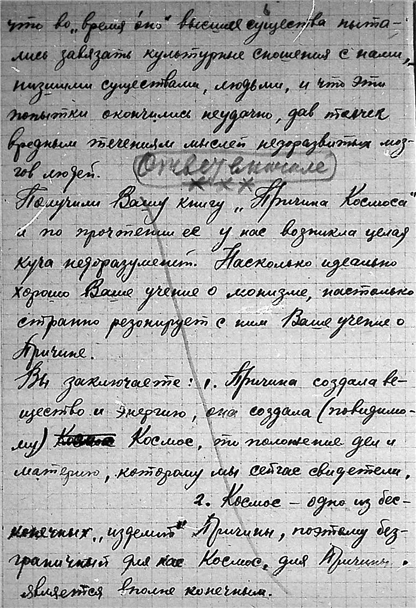 что во „время оно" высшие существа пыта-
лись завязать культурные сношения с нами,
низшими существами, людьми, и что эти
попытки окончились неудачно, дав толчек
вредным течениям мыслей недоразвитых моз-
гов людей.
Ответ вначале
Получили Вашу книгу „Причина Космоса"
и по прочтении ее у нас возникла целая
куча недоразумений. Насколько идеально
хорошо Ваше учение о монизме, настолько
странно резонирует с ним Ваше учение о
Причине.
Вы заключаете: 1. Причина создала ве-
щество и энергию, она создала (повидимо-
му) Космос, то положение дел и
материю, которому мы сейчас свидетели.
2. Космос – одно из бес-
конечных „изделий" Причины, поэтому без-
граничный для нас Космос, для Причины
является вполне конечным.